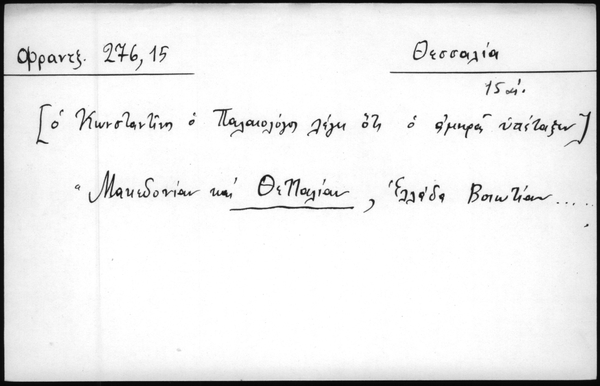 Φραντζ. 276, 15
Θεσσαλία
15 αἰ.
[ὁ Κωνσταντῖνος ὁ Παλαιολόγος λέγει ὅτι ὁ ἀμηρᾶ ὑπέταξεν]
"Μακεδονίαν καὶ Θετταλίαν, Ἑλλάδα Βοιωτίαν .....